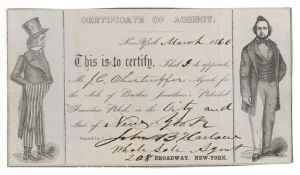 CERTIFICATE OF AGENCY.
New-York, March 1860
This is to certify, That I do appoint
Mr J.C. Agent, for
the Sale of Brother Jonathan's Patented
Furniture Polish, in the City and
State of New York
John B. Harlow
Whole Sale Agent
208 BROADWAY, NEW-YORK.